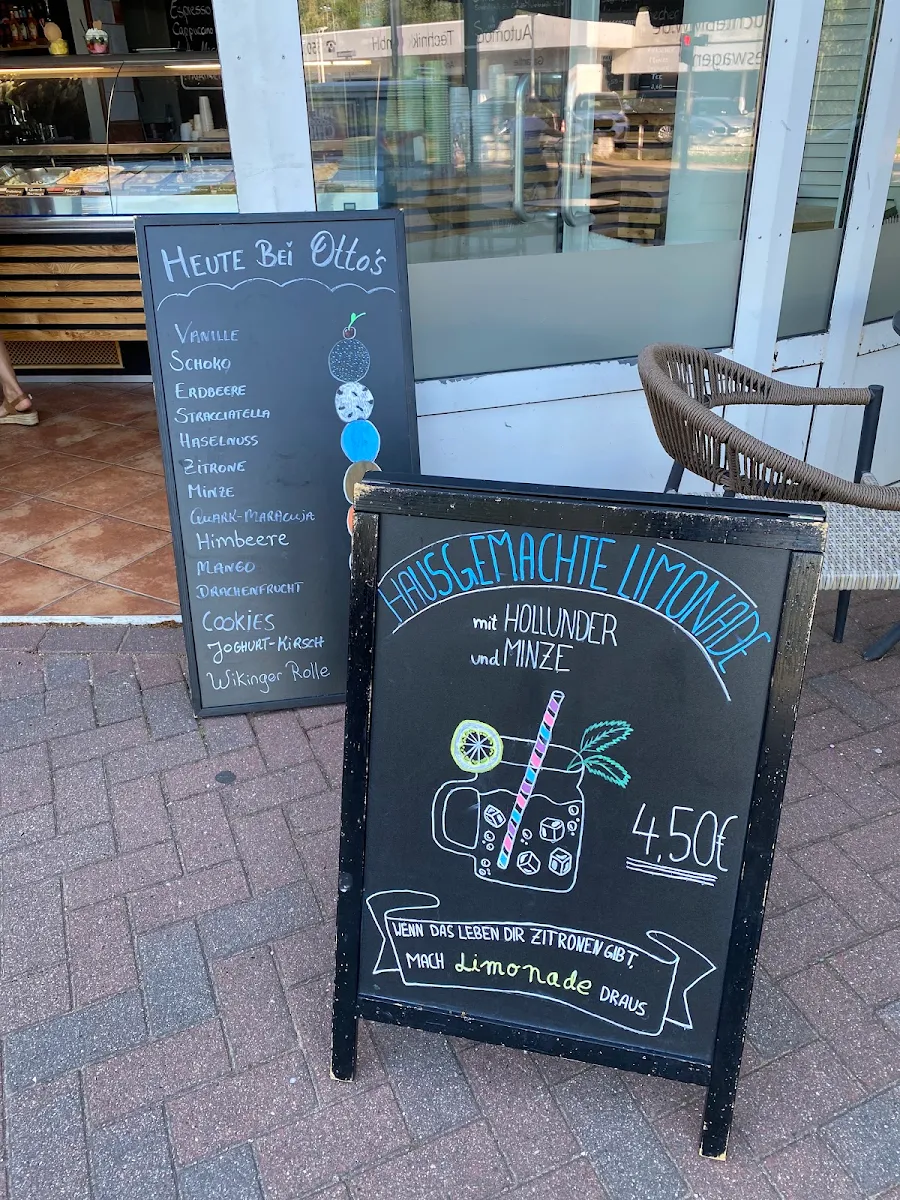 Espresso
Cappuccino
HEUTE BEI Otto's
VANILLE
SCHOKO
ERDBEERE
STRACCIATELLA
HASELNUSS
ZITRONE
MINZE
QUARK-MARACUJA
Himbeere
MANGO
DRACHENFRUCHT
COOKIES
JOGHURT-KIRSCH
Wikinger Rolle
HAUSGEMACHTE LIMONADE
mit HOLLUNDER
und MINZE
4,50€
WENN DAS LEBEN DIR ZITRONEN GIBT,
MACH Limonade DRAUS